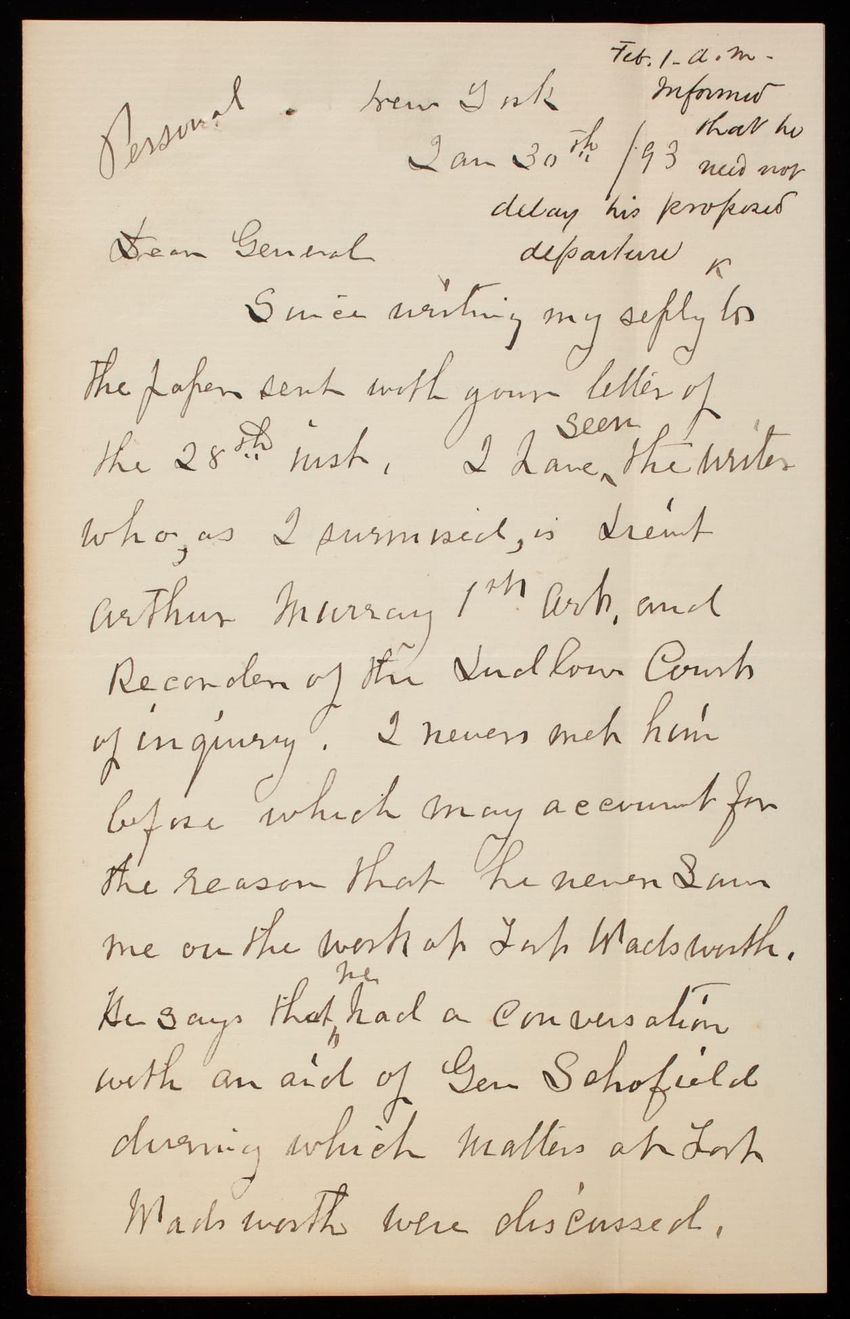 Personal.
New York
Jan 30th /93
Feb. 1 - a.m. -
Informed
that he
need not
delay his proposed
departure K
Dear General
Since writing my reply to
the paper sent with your letter of
the 28th inst, I have seen the writer
who, as I surmised, is Lieut
Arthur Murray 1st Art, and
Recorder of the Ludlow Court
of inquiry. I never met him
before which may account for
the reason that he never saw
me on the work at Fort Wadsworth.
He says that he had a conversation
with an aid of Gen Schofield
during which matters at Fort
Wadsworth were discussed.